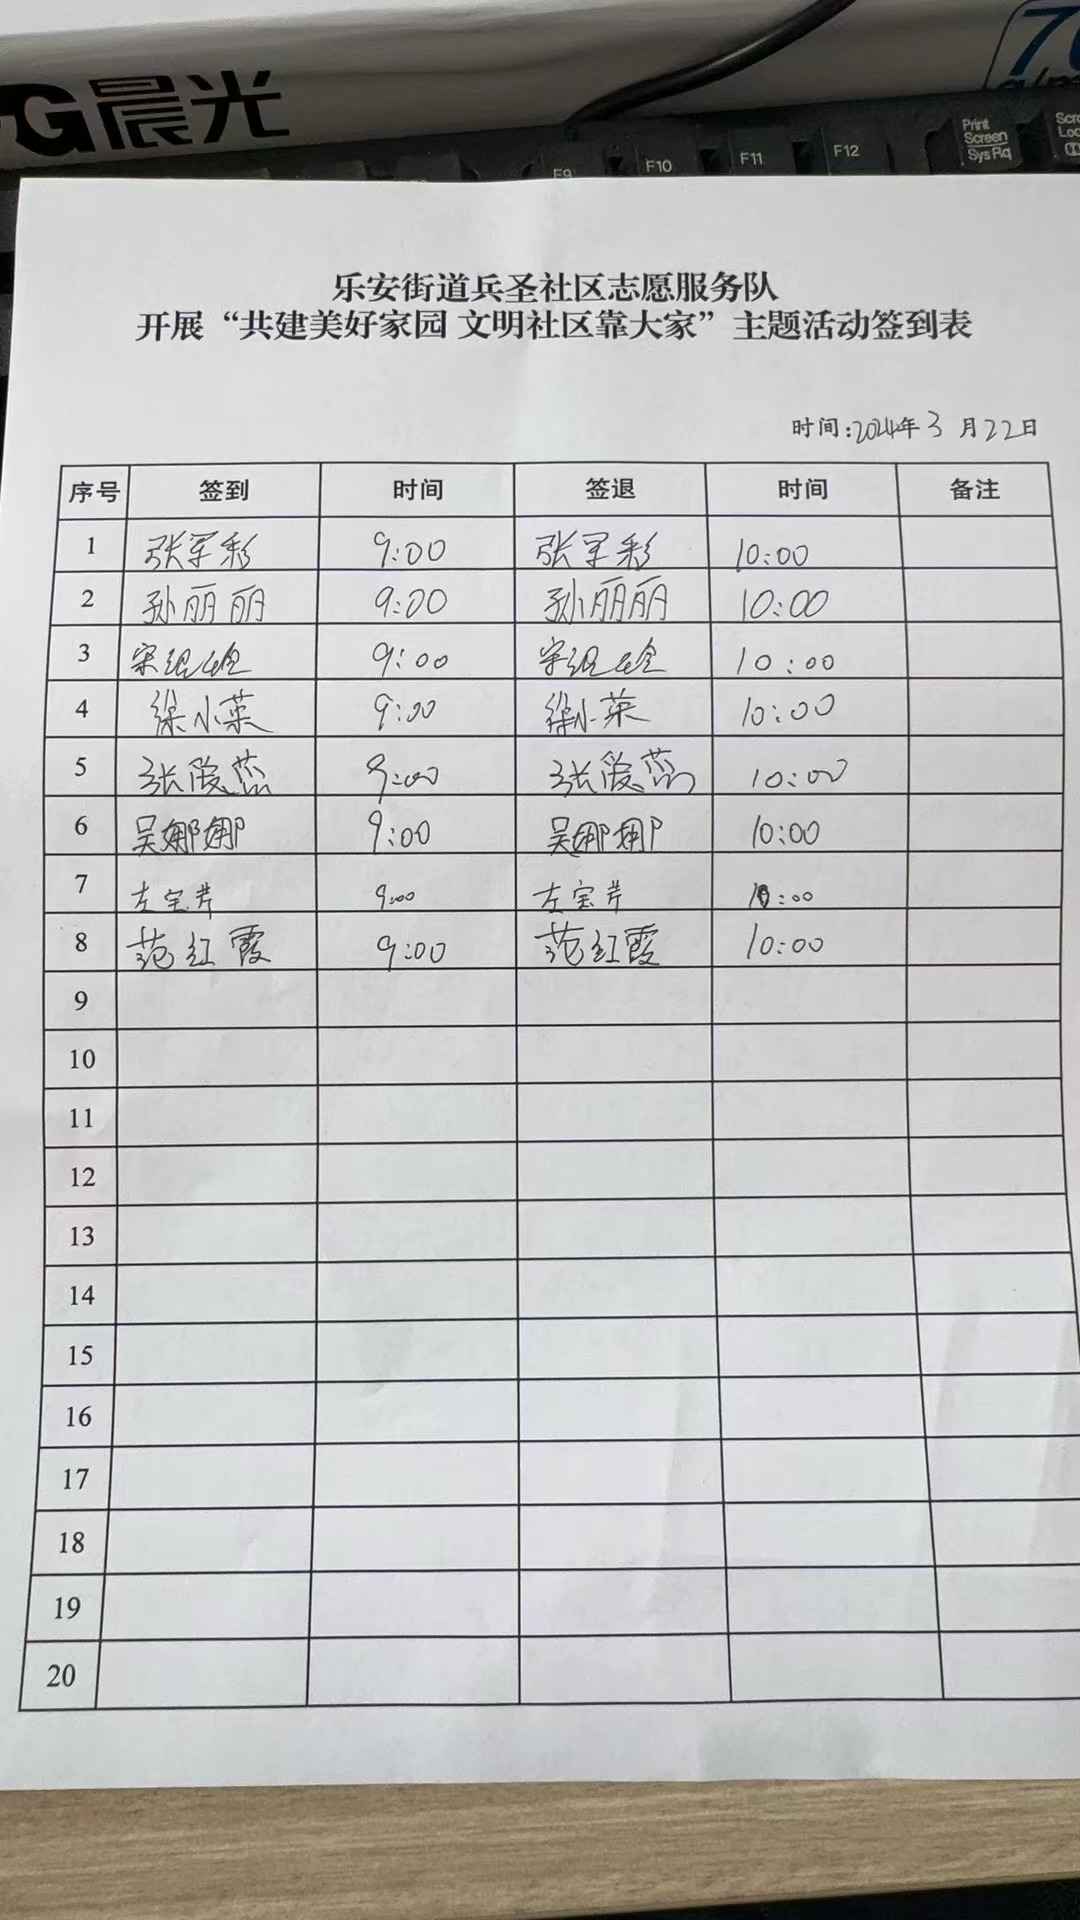 G晨光
70
F9 F10 F11 F12 Print Screen SysRq
乐安街道兵圣社区志愿服务队
开展“共建美好家园 文明社区靠大家”主题活动签到表
时间:2024年3月22日
序号 签到 时间 签退 时间 备注
1 张军彩 9:00 张军彩 10:00
2 孙丽丽 9:00 孙丽丽 10:00
3 宋 9:00 宋 10:00
4 徐小菜 9:00 徐小菜 10:00
5 张爱蕊 9:00 张爱蕊 10:00
6 吴娜娜 9:00 吴娜娜 10:00
7 左宝芹 9:00 左宝芹 10:00
8 范红霞 9:00 范红霞 10:00
9
10
11
12
13
14
15
16
17
18
19
20